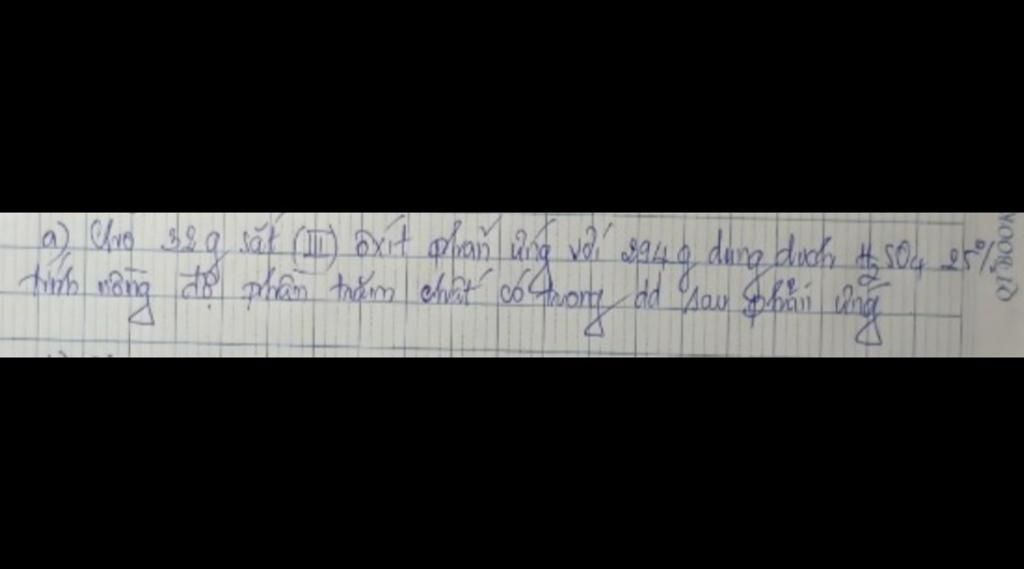 a) Cho 32g sắt (III) oxit phản ứng với 294 g dung dịch H2SO4 25%
tính nồng độ phần trăm chất có trong dd sau phản ứng